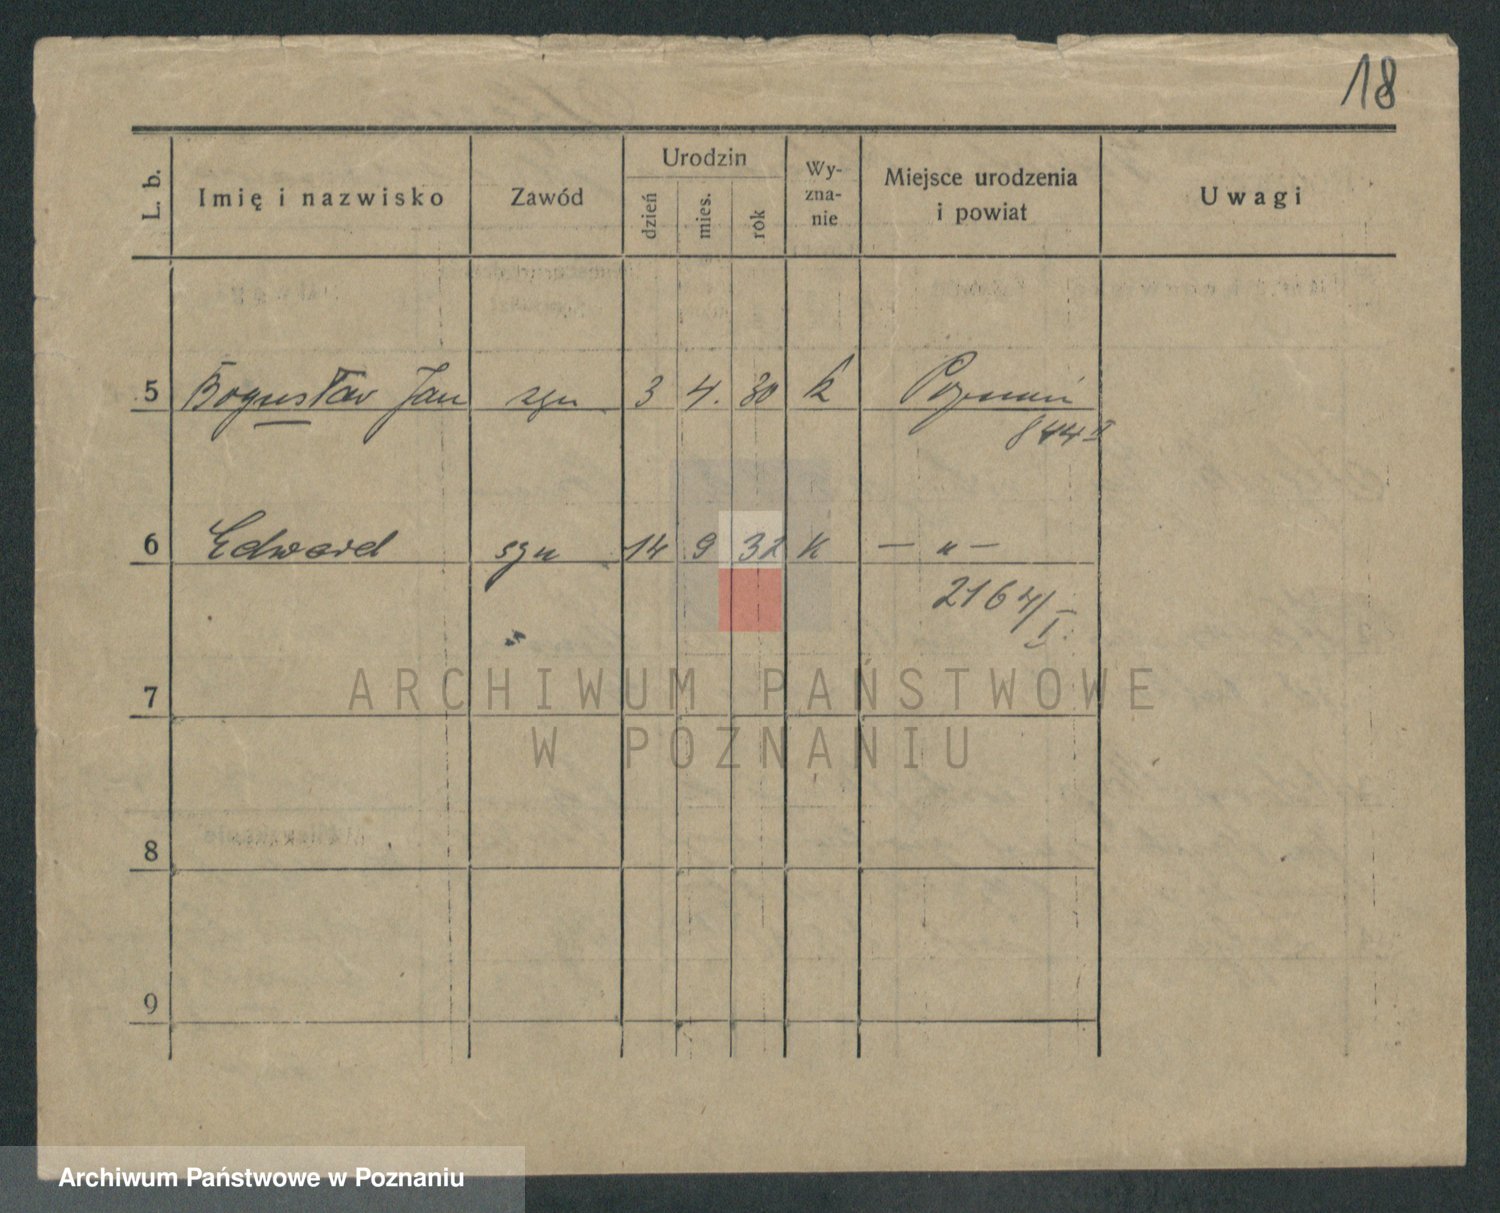 18
L. b.
Imię i nazwisko
Zawód
Urodzin
dzień
mies.
rok
Wy-
zna-
nie
Miejsce urodzenia
i powiat
Uwagi
5 Bogusław Jan syn 3 4. 30 k Poznań
844 II
6 Edward syn 14 9 32 k — „ —
2164/I.
7
8
9
ARCHIWUM PAŃSTWOWE
W POZNANIU
Archiwum Państwowe w Poznaniu